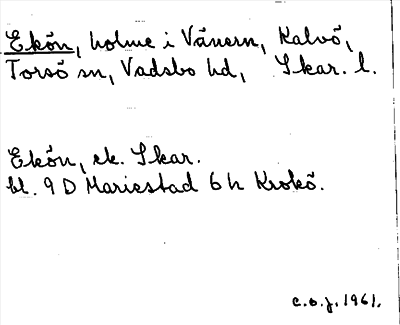 Ekön, holme i Vänern, Kalvö,
Torsö sn, Vadsbo hd, Skar. l.
Ekön, ek. Skar.
bl. 9 D Mariestad 6 h Krokö.
c.o.j. 1961.